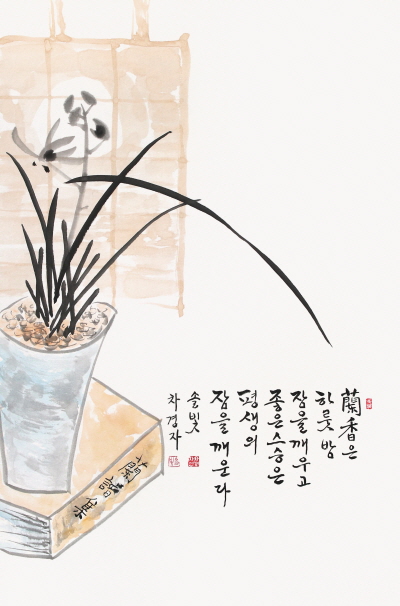 蘭香은
하룻밤
잠을깨우고
좋은스승은
평생의
잠을깨운다
솔빛
차경자